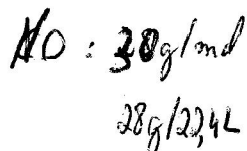 NO : 30g/mol
28g/22,4L